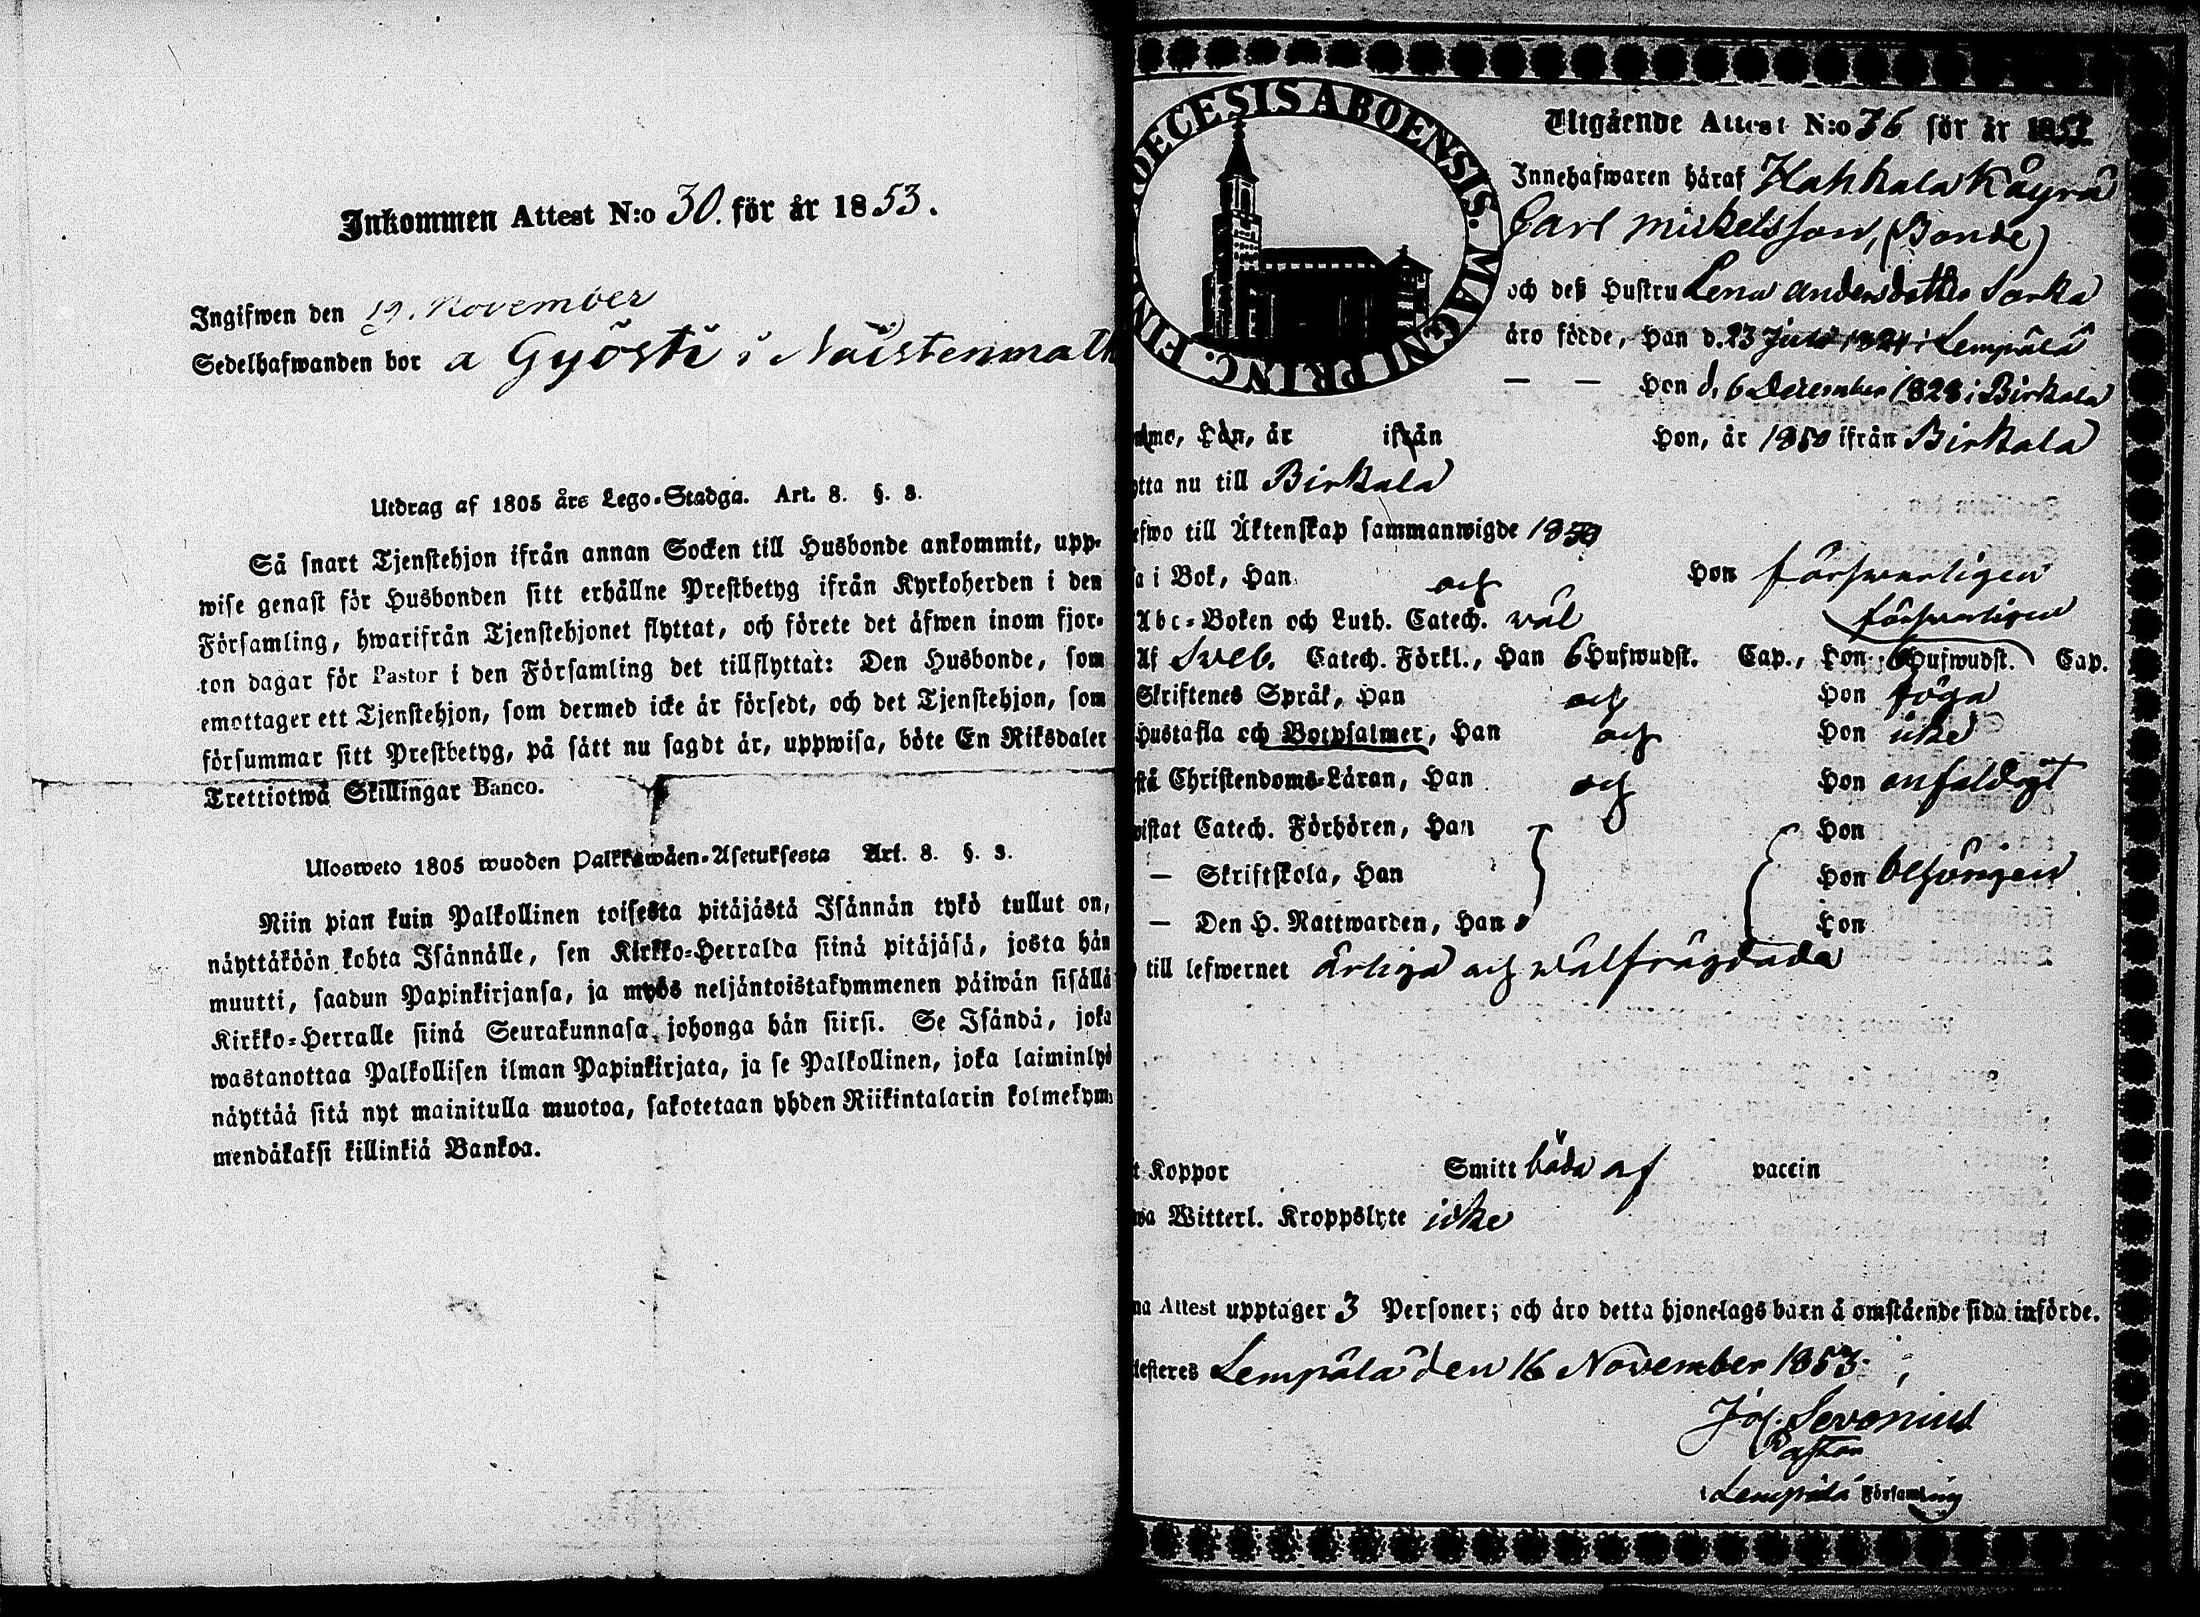 Inkommen Attest N:o 30. för år 1853.
Ingifwen den 19. November
Sedelhafwanden bor a Gyösti i Naistenmatk
Utdrag af 1805 års Lego-Stadga. Art. 8. §. 3.
Så snart Tjenstehjon ifrån annan Socken till Husbonde ankommit, upp-
wise genast för Husbonden sitt erhållne Prestbetyg ifrån Kyrkoherden i den
Församling, hwarifrån Tjenstehjonet flyttat, och förete det äfwen inom fjor-
ton dagar för Pastor i den Församling det tillflyttat: Den Husbonde, som
emottager ett Tjenstehjon, som dermed icke är försedt, och det Tjenstehjon, som
försummar sitt Prestbetyg, på sätt nu sagdt är, uppwisa, böte En Riksdaler
Trettiotwå Skillingar Banco.
Ulosweto 1805 wuoden Palkkawäen-Asetuksesta Art. 8. §. 3.
Niin pian kuin Palkollinen toisesta pitäjästä Isännän tykö tullut on,
näyttäköön kohta Isännälle, sen Kirkko-Herralda siinä pitäjäsä, josta hän
muutti, saadun Papinkirjansa, ja myös neljäntoistakymmenen päiwän sisällä
Kirkko-Herralle siinä Seurakunnasa, johonga hän siirsi. Se Isändä, joka
wastanottaa Palkollisen ilman Papinkirjata, ja se Palkollinen, joka laiminlyö
näyttää sitä nyt mainitulla muotoa, sakotetaan yhden Riikintalarin kolmekym-
mendäkaksi killinkiä Bankoa.
DECESIS ABOENSIS. MAGNI PRINC. FIN
Utgående Attest N:o 76 för år 1853.
Innehafwaren häraf Hahkala Käyrä
Carl Mickelsson, (Bonde)
och deß Hustru Lena Andersdotter Sorka
äro födde, Han d. 23 Juli 1824 i Lempälä
— — Hon d. 6 December 1828 i Birkala
omne, Han, år ifrån Hon, år 1850 ifrån Birkala
tta nu till Birkala
efwo till Äktenskap sammanwigde 1850
a i Bok, Han och Hon försvarligen
Abc-Boken och Luth. Catech. väl försvarligen
Af Sveb. Catech. Förkl., Han 6 Hufwudst. Cap., Hon 6 Hufwudst. Cap.
Skriftenes Språk, Han och Hon föga
Hustafla och Botpsalmer, Han och Hon icke
stå Christendoms-Läran, Han och Hon enfaldigt
wistat Catech. Förhören, Han Hon
— Skriftskola, Han Hon behörigen
— Den H. Nattwarden, Han Hon
till lefwernet ärliga och välfrägdade
t Koppor Smitt båda af vaccin
wa Witterl. Kroppslyte icke
na Attest upptager 3 Personer; och äro detta hjonelags barn å omstående sida införde.
testeres Lempälä den 16 November 1853.
Jos. Sevonius
Pastor
i Lempälä Församling